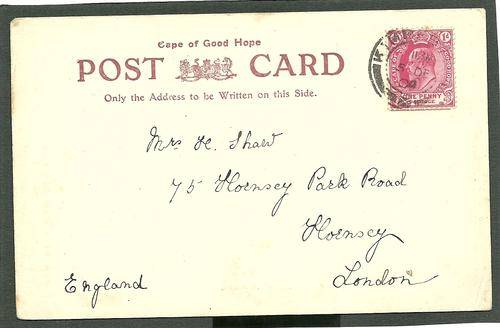 Cape of Good Hope
POST CARD
Only the Address to be Written on this Side.
1d
ONE PENNY
Mrs H. Shaw
75 Hornsey Park Road
Hornsey
London
England